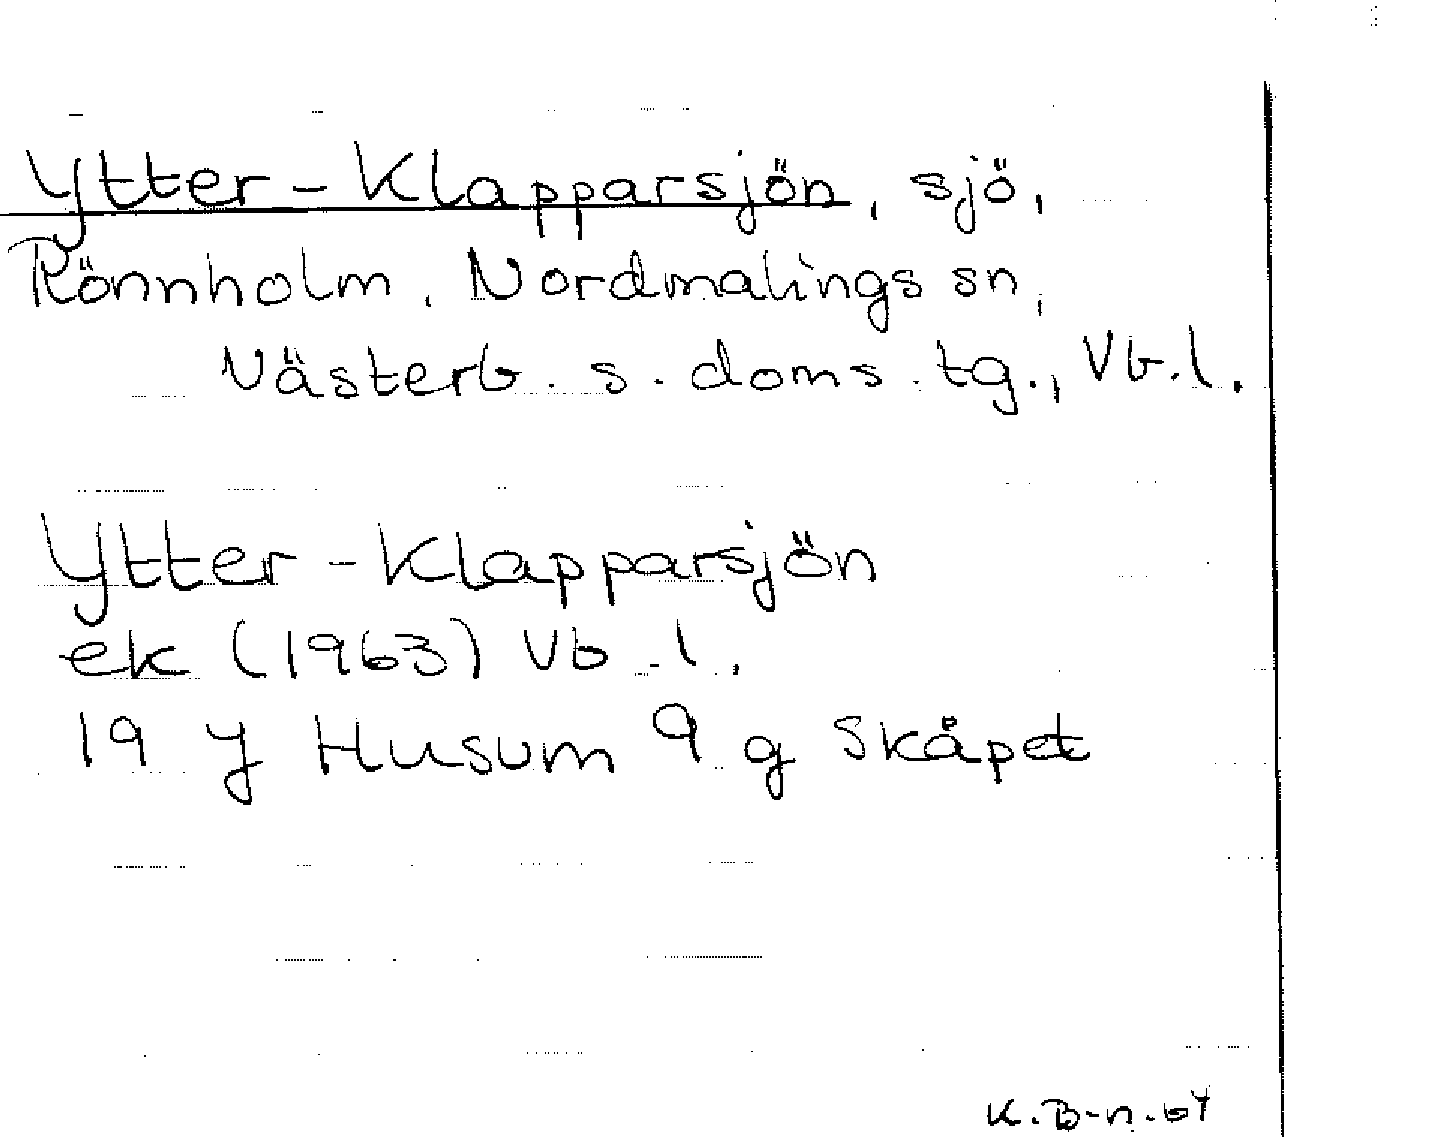 Ytter-Klapparsjön, sjö,
Rönnholm, Nordmalings sn,
Västerb. s. doms. tg., Vb.l.
Ytter-Klapparsjön
ek (1963) Vb.l.
19 J Husum 9 g Skåpet
K.B-n. 64